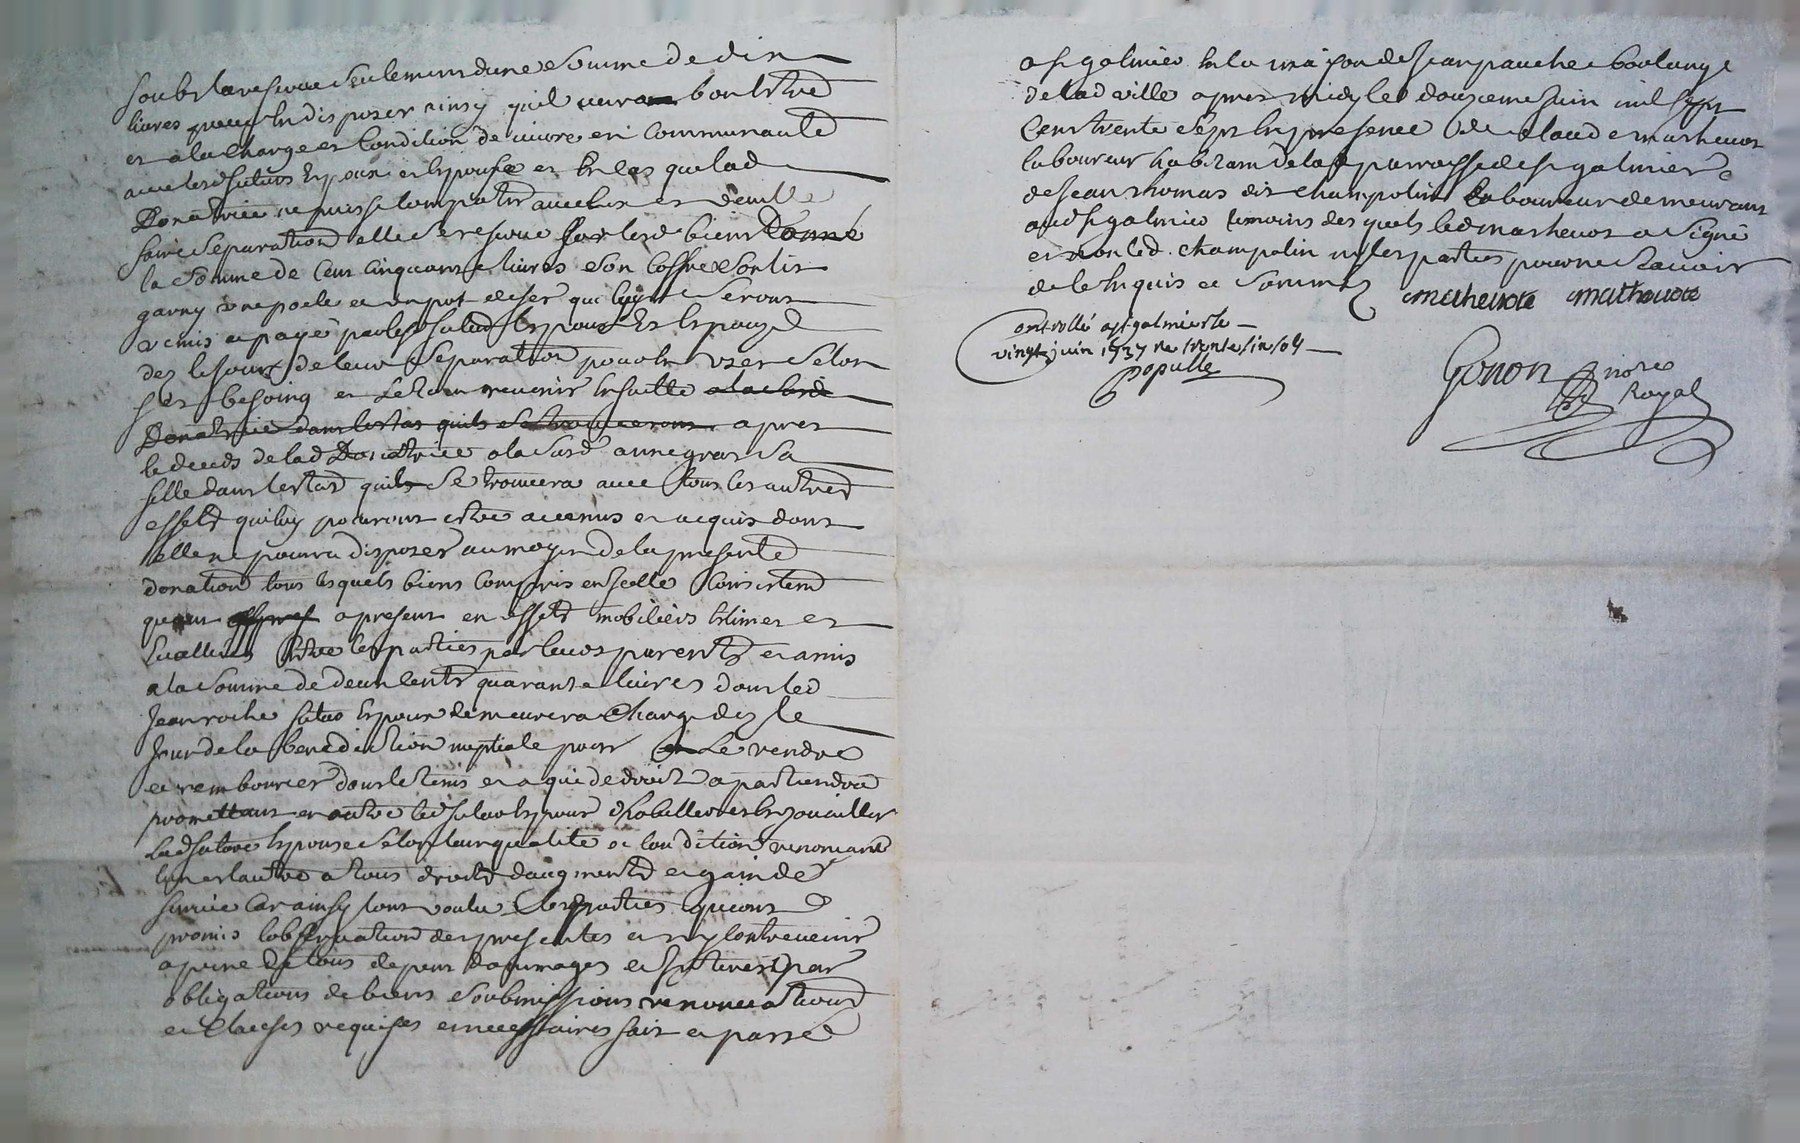 soubs la reserve seulement dune somme de dix
livres pour en disposer ainsy quil verra bon estre
et a la charge et condition de vivre en communauté
avec lesd futurs Epoux et Epouse et en cas que lad
Donatrice ne puisse compatir avec eux et veuille
faire separation elle se reserve sur lesd biens Donné
la somme de cent cinquante livres son coffre sortir
garny une poele et un pot de fer qui luy seront
remis et payé par lesd futurs Epoux et Epouze
dez le jour de leur separation pour en uzer selon
ses besoing et le tout revenir ensuitte a la susd
Donatrice dans lestat quils se trouveront apres
le deceds de lad Donatrice a la susd anne gras sa
fille dans lestat quils se trouvera avec tous les autres
effets qui luy pourront estre avenus et acquis dont
elle ne pourra disposer au moyen de la presente
donation tous lesquels biens compris en icelle consistent
quant a present en effets mobiliers estimes et
Evallues entre les parties par leurs parents et amis
a la somme de deux cents quarante livres dont led
Jean roche futur Epoux demeurera chargé dez le
Jour de la benediction nuptiale pour le rendre
et rembourcer dans le tems et a qui de droit apartiendra
promettant en outre led futur Epoux dhabiller et Enjouailler
lad future Epouse selon leur qualité et condition renoncant
lun et lautre a tous droits daugments et gain de
survie Car ainsy lont voulu les parties qui ont
promis lobservation des presentes et ny contrevenir
a peine de tous depens dommages et Interests par
obligations de biens soubmissions renonciations
et clauses requises et necessaires fait et passé
a st galmier en la maison de Jean pauche boulangé
de lad ville apres midy le douzieme Juin mil sept
Cent trente sept En presence de Claude matheuot
laboureur habitant de la parroisse de st galmier &
de Jean thomas dit champolin laboureur demeurant
aud st galmier temoins des quels led matheuot a signé
et non led. champolin ny les parties pour ne scavoir
de ce Enquis et sommé
matheuot matheuot
Controllé a st galmier le
vingt juin 1737 Re trente six sols
Populle
Gonon nore
Royal